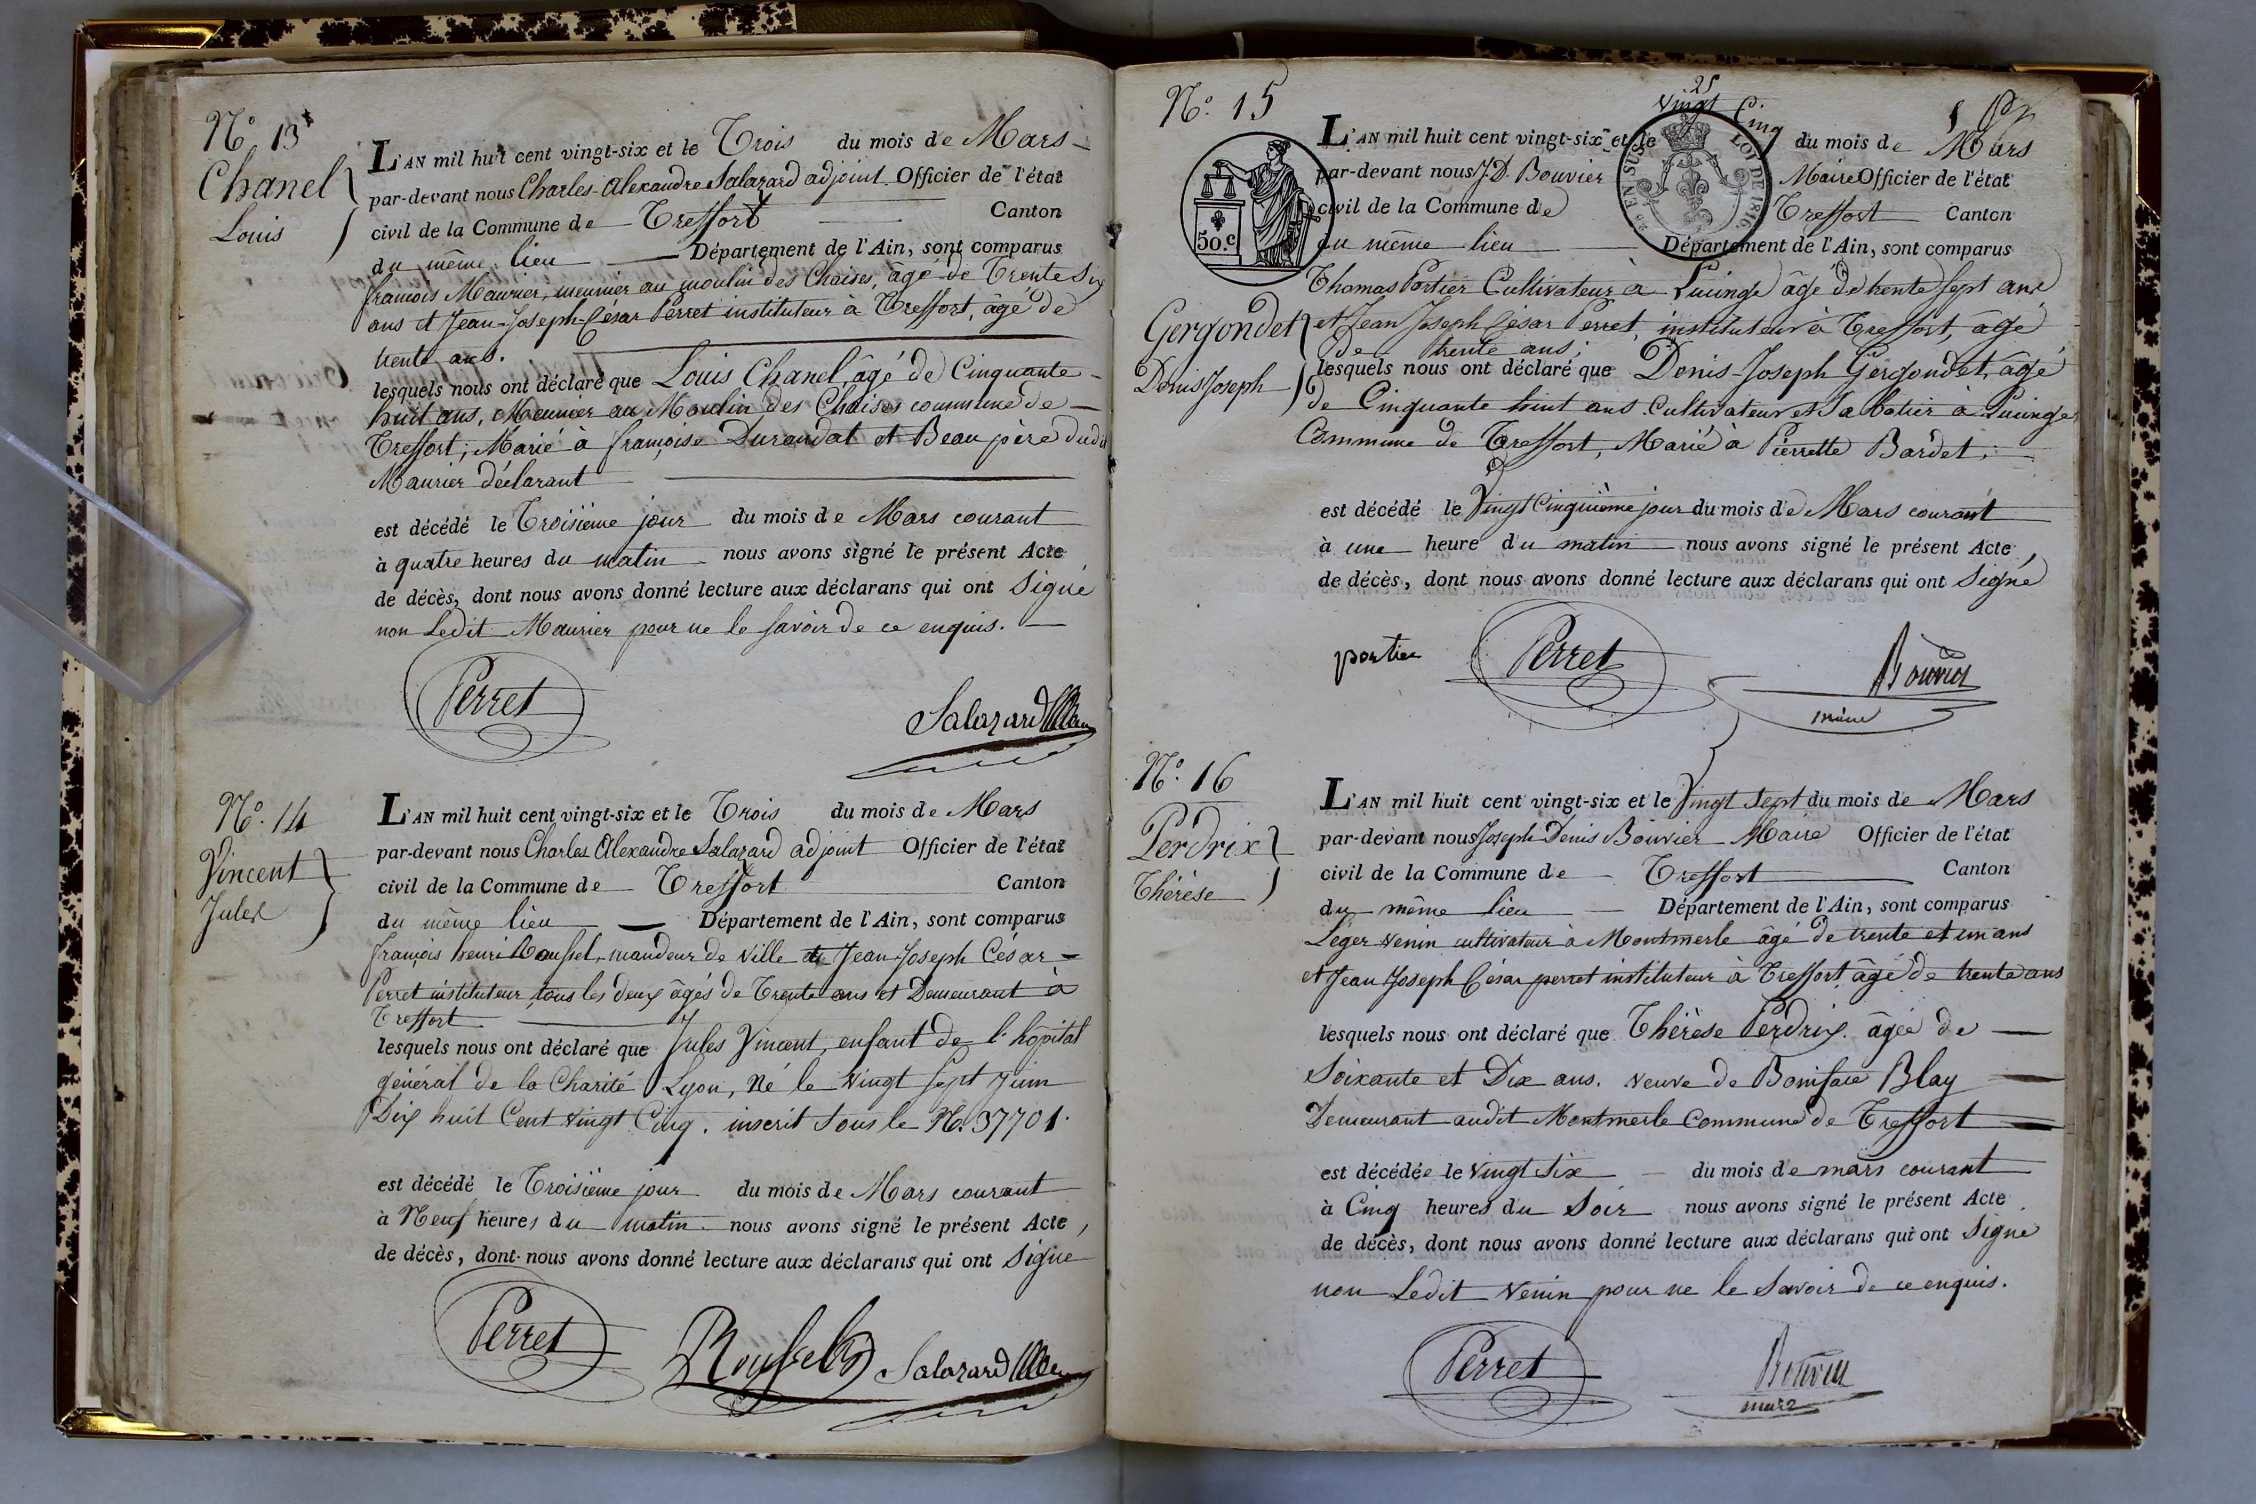 N.º 13
Chanel
Louis
L'AN mil huit cent vingt-six et le Trois du mois de Mars
par-devant nous Charles-Alexandre Salazard adjoint Officier de l'état
civil de la Commune de Treffort Canton
du même lieu Département de l'Ain, sont comparus
françois Maurier, meunier au moulin des Chaises, âgé de Trente Six
ans et Jean-Joseph-César Perret instituteur à Treffort, âgé de
trente ans.
lesquels nous ont déclaré que Louis Chanel, âgé de Cinquante
huit ans, Meunier au Moulin des Chaises commune de
Treffort; Marié à françoise Durandat et Beau père dudit
Maurier déclarant
est décédé le Troisième jour du mois de Mars courant
à quatre heures du matin nous avons signé le présent Acte
de décès, dont nous avons donné lecture aux déclarans qui ont Signé
non Ledit Maurier pour ne le savoir de ce enquis.
Perret Salazard
N.º 14
Vincent
Jules
L'AN mil huit cent vingt-six et le Trois du mois de Mars
par-devant nous Charles Alexandre Salazard adjoint Officier de l'état
civil de la Commune de Treffort Canton
du même lieu Département de l'Ain, sont comparus
françois henri Roussel, mandeur de Ville et Jean Joseph César
Perret instituteur, tous les deux âgés de Trente ans et Demeurant à
Treffort
lesquels nous ont déclaré que Jules Vincent, enfant de l'hôpital
général de la Charité Lyon, Né le vingt sept Juin
Dix huit Cent vingt Cinq, inscrit sous le N.º 37701.
est décédé le Troisième jour du mois de Mars courant
à Neuf heures du matin nous avons signé le présent Acte,
de décès, dont nous avons donné lecture aux déclarans qui ont Signé
Perret Roussel Salazard
N.º 15
25
50.c
EN SUS
LOI DE 1816
Gergondet
Denis Joseph
L'AN mil huit cent vingt-six et le vingt Cinq du mois de Mars
par-devant nous J.D. Bouvier Maire Officier de l'état
civil de la Commune de Treffort Canton
du même lieu Département de l'Ain, sont comparus
Thomas Portier Cultivateur à Lucinge âgé de trente sept ans
et Jean Joseph César Perret, instituteur à Treffort, âgé
de trente ans;
lesquels nous ont déclaré que Denis-Joseph Gergondet, âgé
de Cinquante huit ans Cultivateur et Sabotier à Lucinge
Commune de Treffort, Marié à Pierrette Bardet;
est décédé le Vingt Cinquième jour du mois de Mars courant
à une heure du matin nous avons signé le présent Acte,
de décès, dont nous avons donné lecture aux déclarans qui ont Signé
portier Perret Bouvier
maire
N.º 16
Perdrix
Thérèse
L'AN mil huit cent vingt-six et le Vingt Sept du mois de Mars
par-devant nous Joseph Denis Bouvier Maire Officier de l'état
civil de la Commune de Treffort Canton
du même lieu Département de l'Ain, sont comparus
Léger Venin cultivateur à Montmerle âgé de trente et un ans
et Jean Joseph César perret instituteur à Treffort, âgé de trente ans
lesquels nous ont déclaré que Thérèse Perdrix. âgée de
Soixante et Dix ans. veuve de Boniface Blay
Demeurant audit Montmerle Commune de Treffort
est décédée le vingt six du mois de mars courant
à Cinq heures du Soir nous avons signé le présent Acte
de décès, dont nous avons donné lecture aux déclarans qui ont Signé
non Ledit Venin pour ne le Savoir de ce enquis.
Perret Bouvier
maire